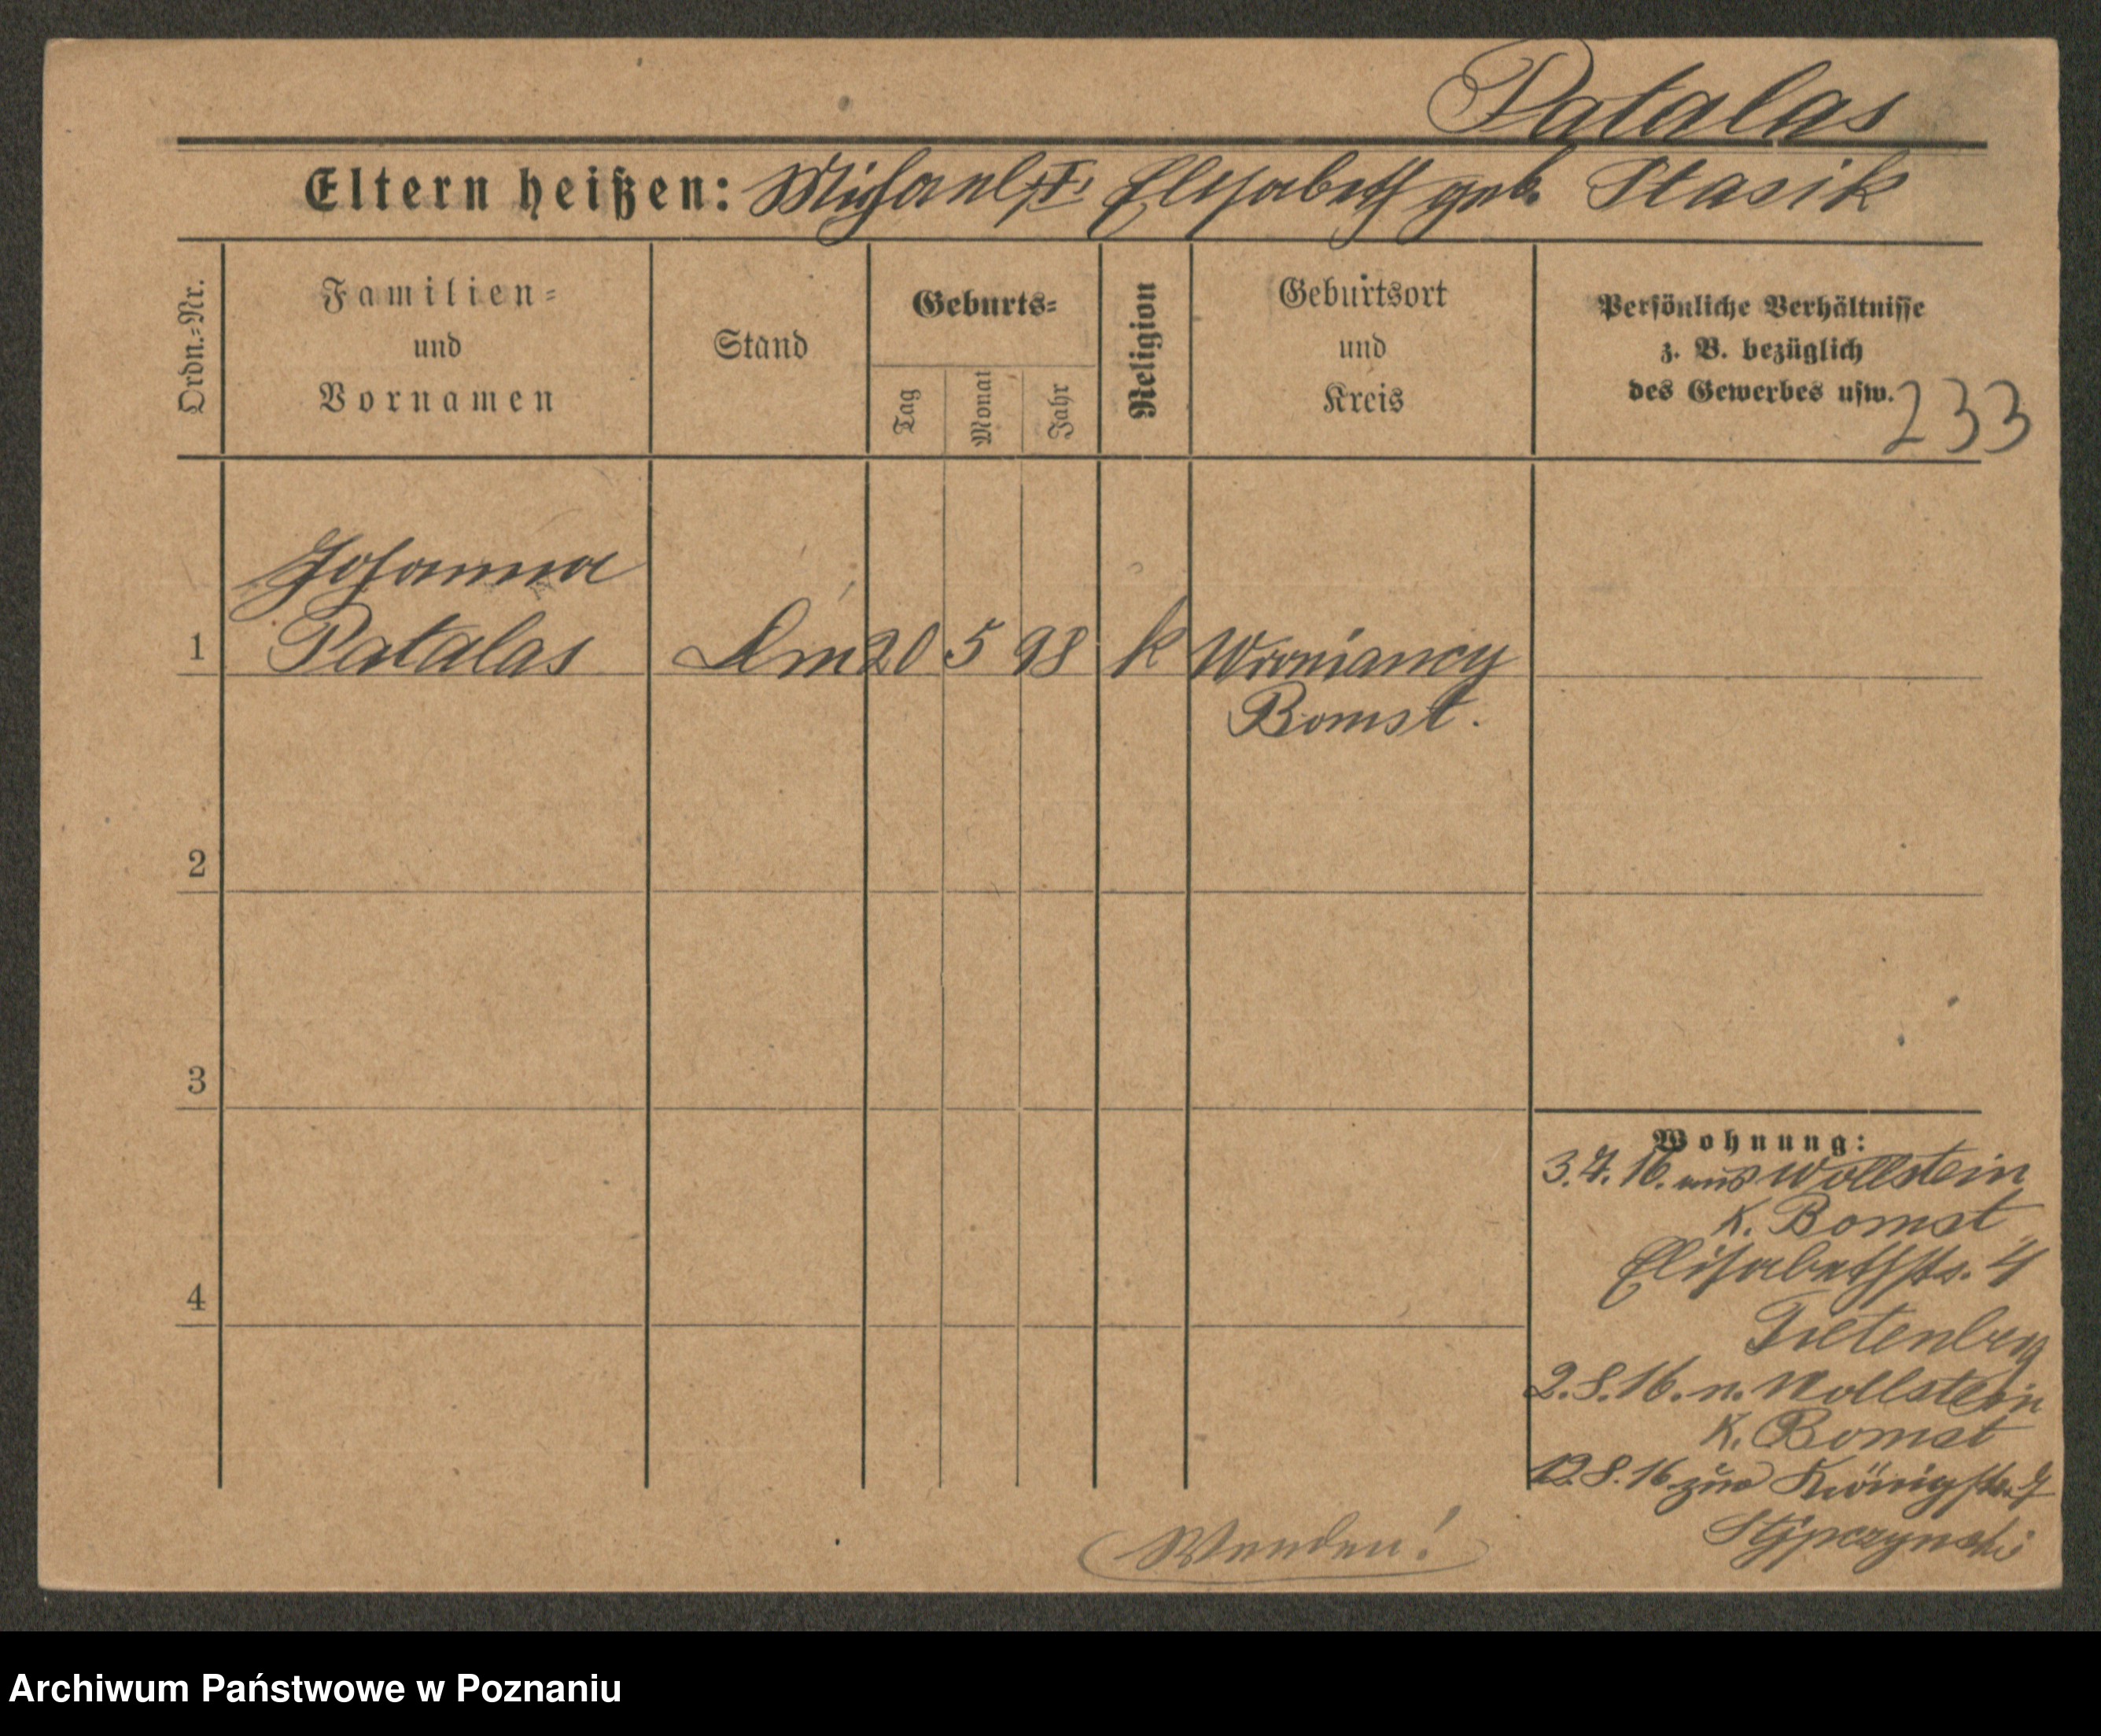 Patalas
Eltern heißen: Michael, Elisabeth geb. Stasik
Ordn.-Nr.
Familien-
und
Vornamen
Stand
Geburts-
Tag
Monat
Jahr
Religion
Geburtsort
und
Kreis
Persönliche Verhältnisse
z. B. bezüglich
des Gewerbes usw.
233
Johanna
1 Patalas 20 5 98 k Wroniancy
Bomst.
2
3
4
Wohnung:
3.7.16. aus Wollstein
K. Bomst
Elisabethstr. 4
2.8.16. n. Wollstein
K. Bomst
12.8.16 zur Königstr. 7
Stypczynski
Wenden!
Archiwum Państwowe w Poznaniu